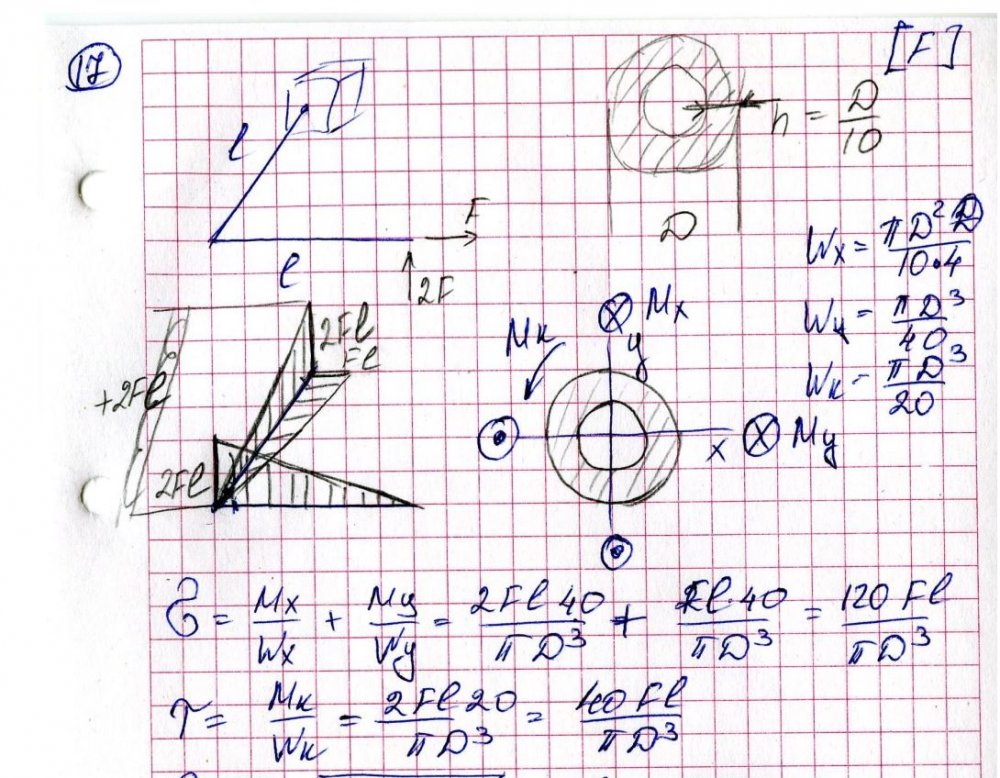 17
[F]
l
h = D/10
F
l
2F
D
Wx = πD²D/10·4
Wy = πD³/40
Wк = πD³/20
2Fl
Fl
+2Fl
2Fl
Mк
Mx
y
x
My
σ = Mx/Wx + My/Wy = 2Fl 40/πD³ + Fl·40/πD³ = 120 Fl/πD³
τ = Mк/Wк = 2Fl 20/πD³ = 40 Fl/πD³